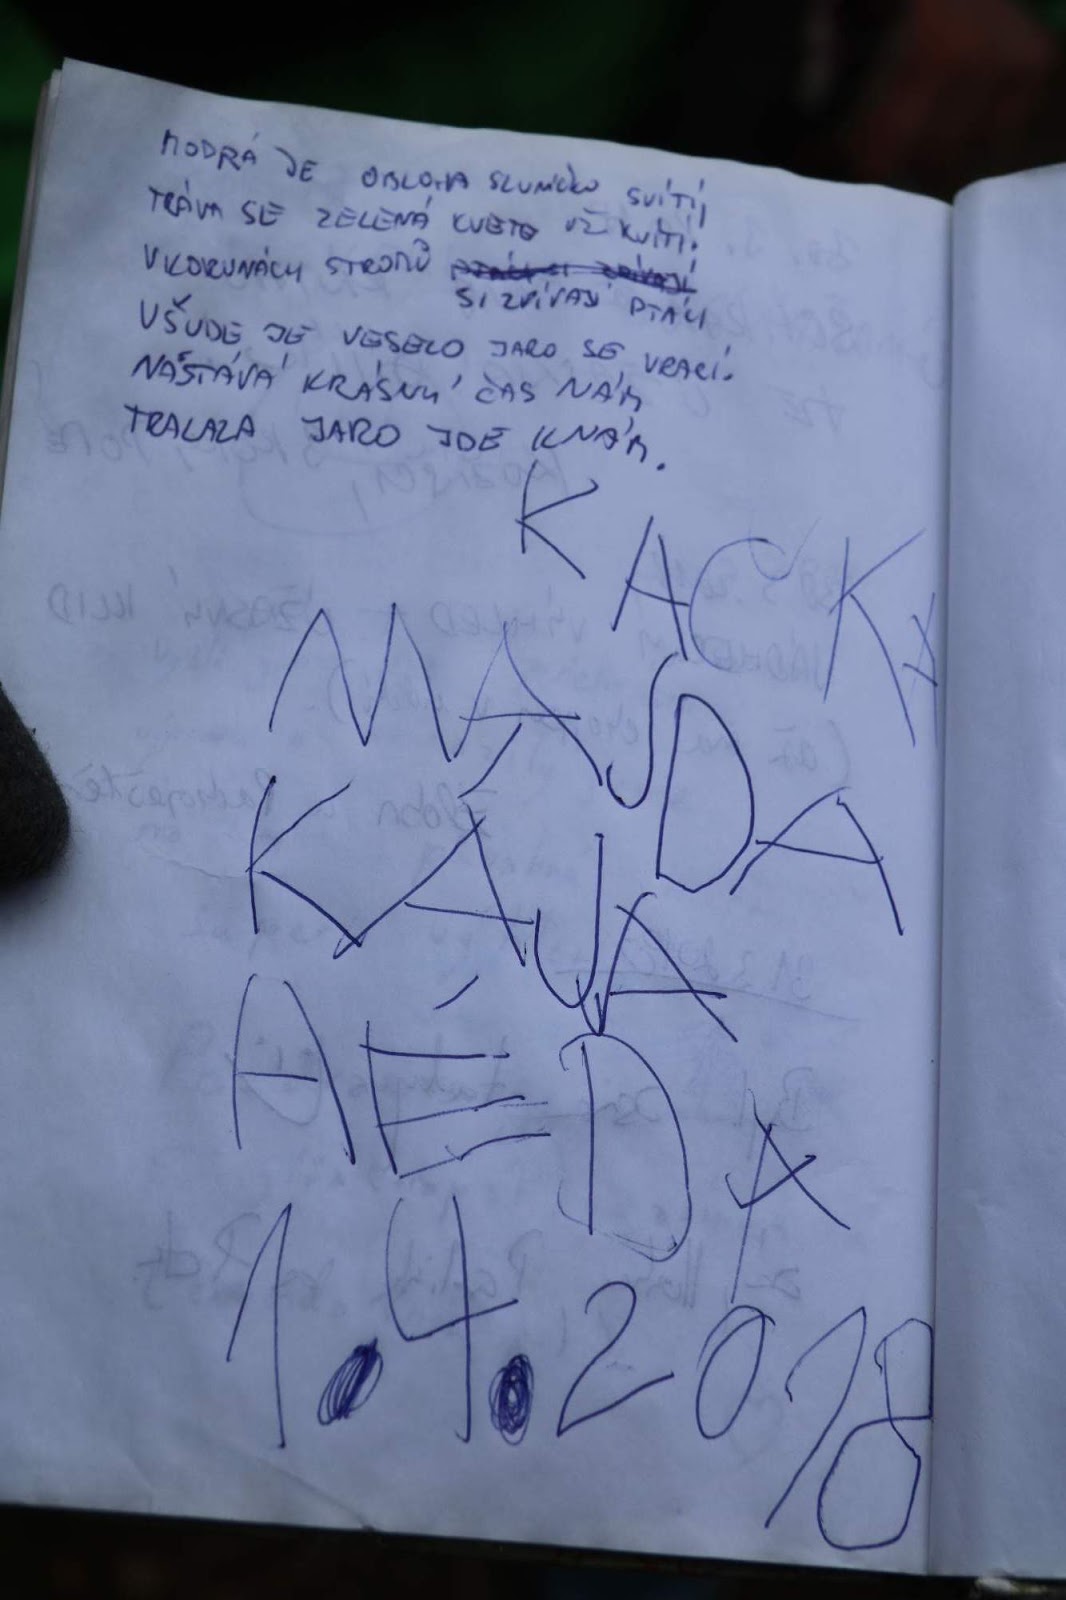 MODRÁ JE OBLOHA SLUNÍČKO SVÍTÍ,
TRÁVA SE ZELENÁ KVETE VŠE KVÍTÍ.
V KORUNÁCH STROMŮ
SI ZPÍVAJÍ PTÁCI
VŠUDE JE VESELO JARO SE VRACÍ.
NAŠTÁVÁ KRÁSNÝ ČAS NÁM
TRALALA JARO JDE K NÁM.
KAČKA
MAJDA
KÁJA
AÉDA
1.4.2018